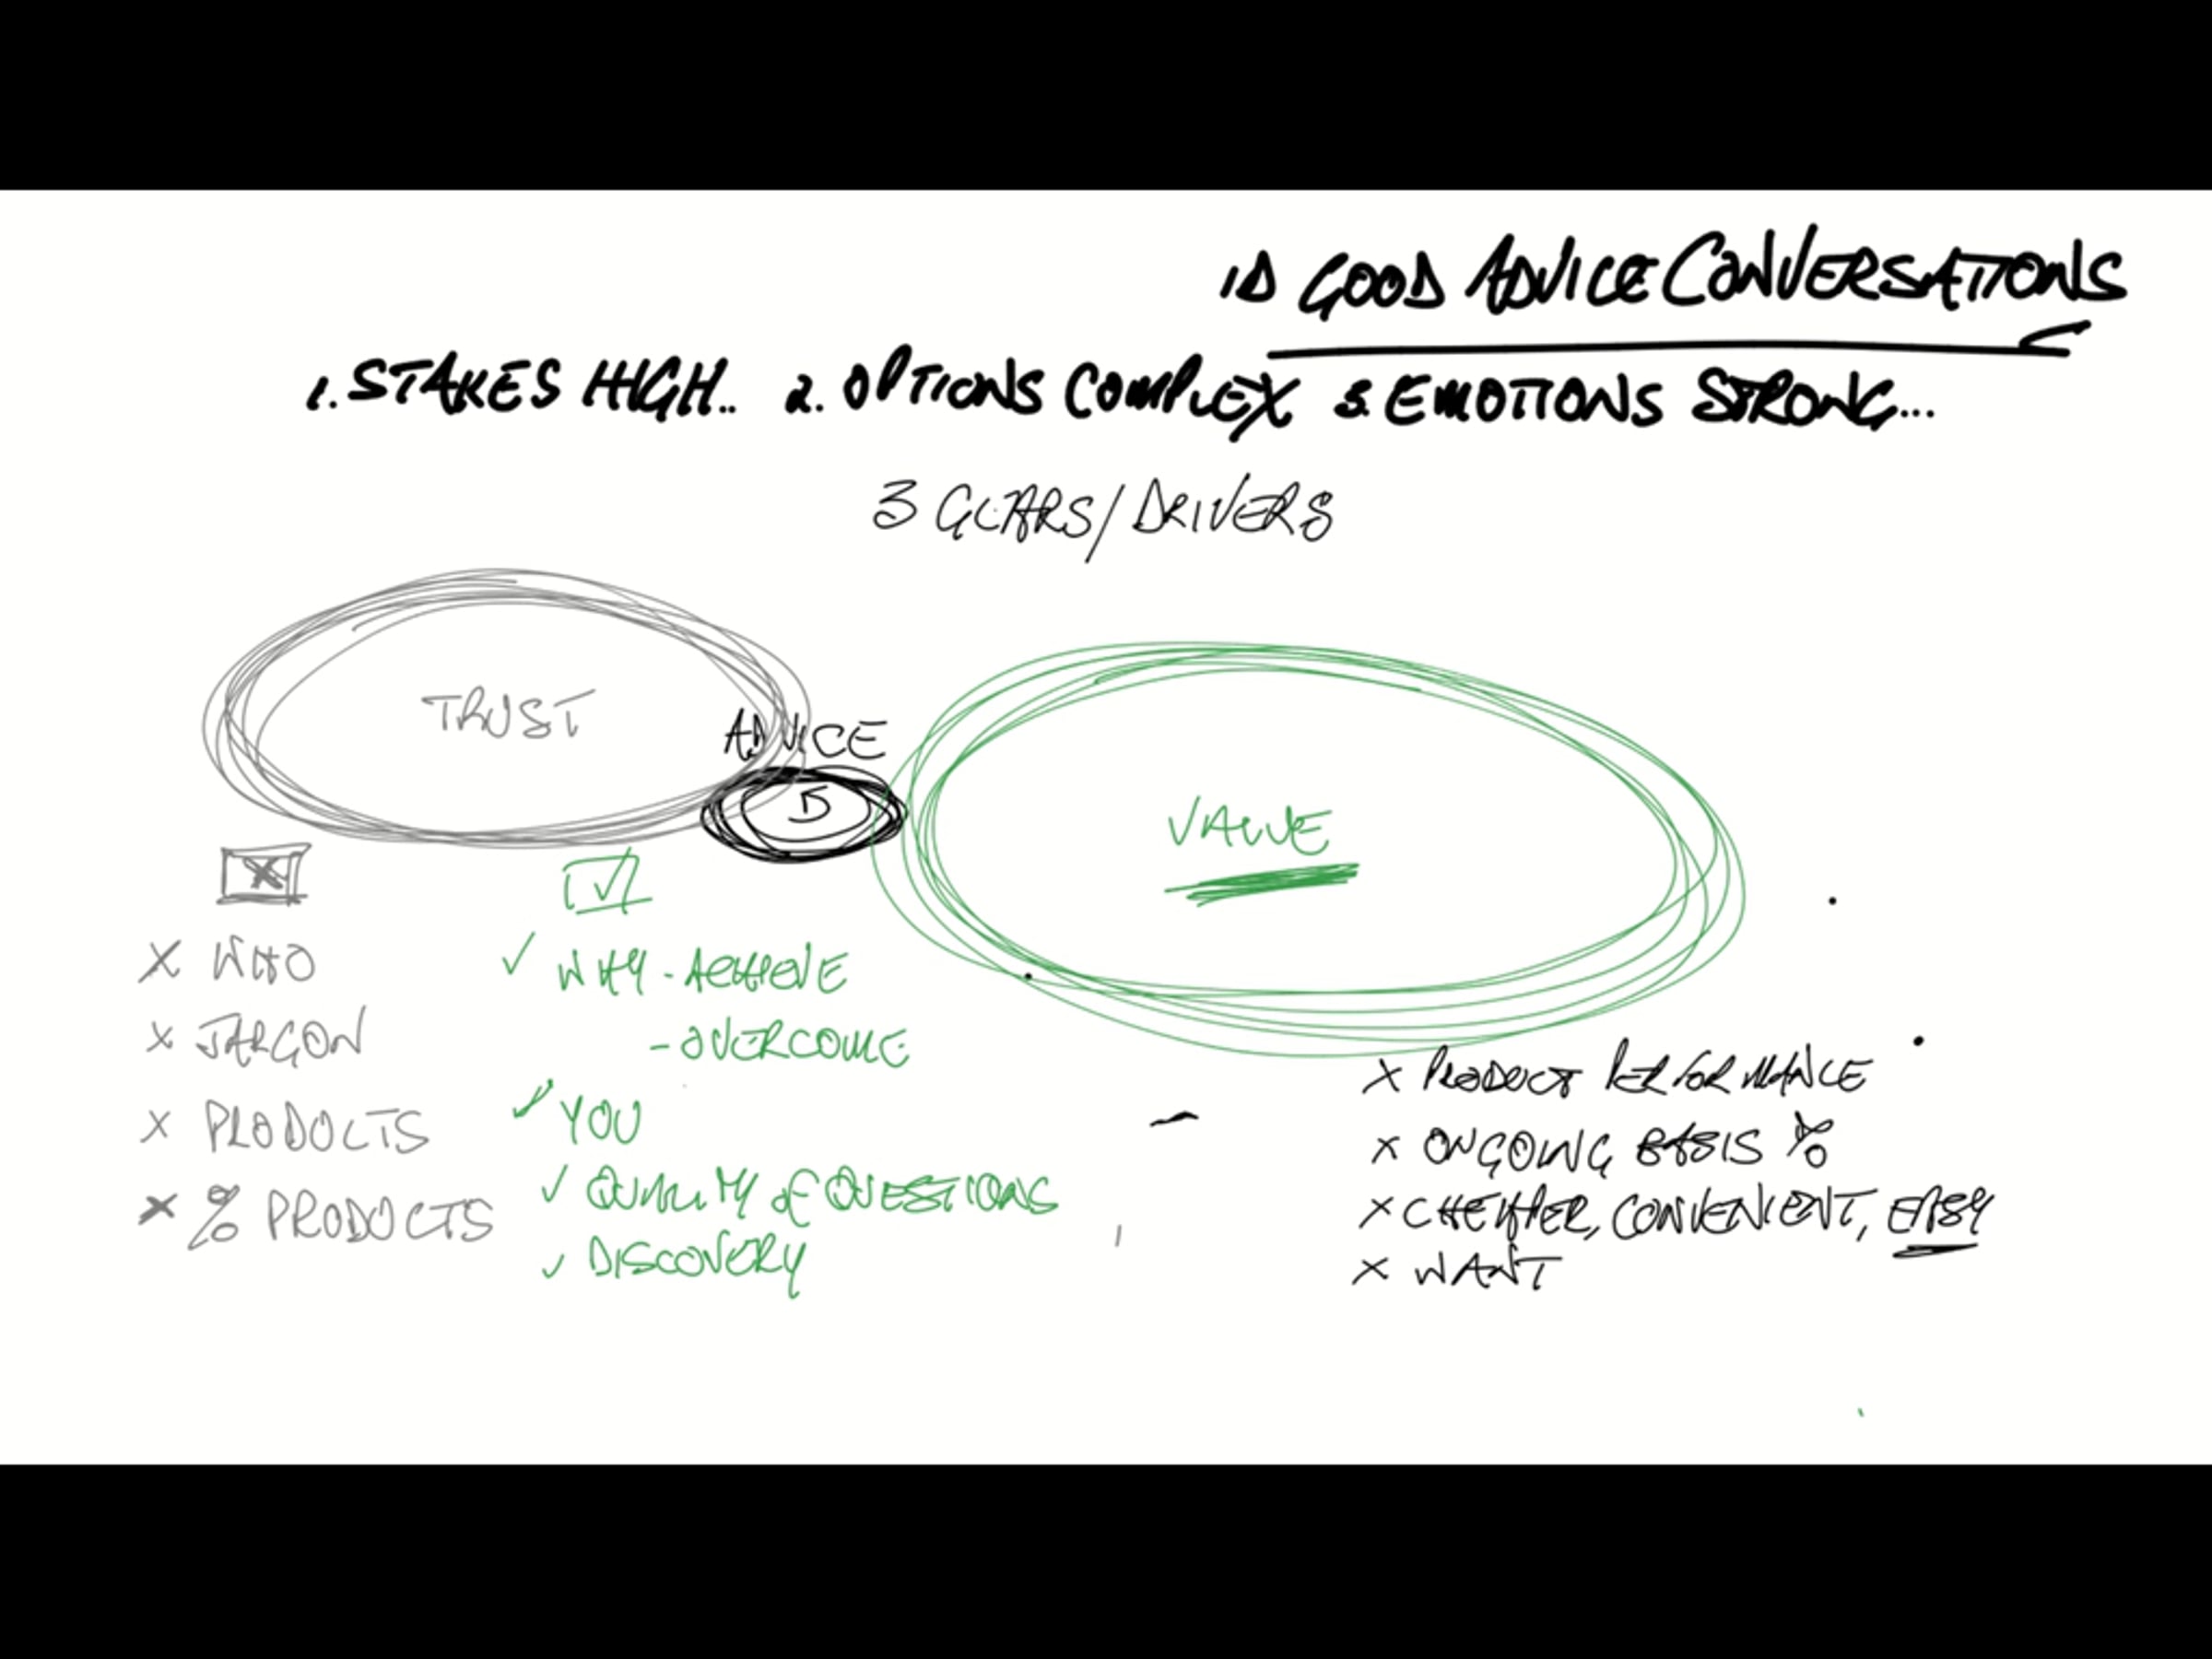 GOOD ADVICE CONVERSATIONS
1. STAKES HIGH.. 2. OPTIONS COMPLEX 3. EMOTIONS STRONG...
3 GEARS/DRIVERS
TRUST
ADVICE
VALUE
X WHO
X JARGON
X PRODUCTS
X % PRODUCTS
✓ WHY - ACHIEVE
- OVERCOME
✓ YOU
✓ QUALITY of QUESTIONS
✓ DISCOVERY
X PRODUCT PERFORMANCE
X ONGOING BASIS %
X CHEAPER, CONVENIENT, EASY
X WANT